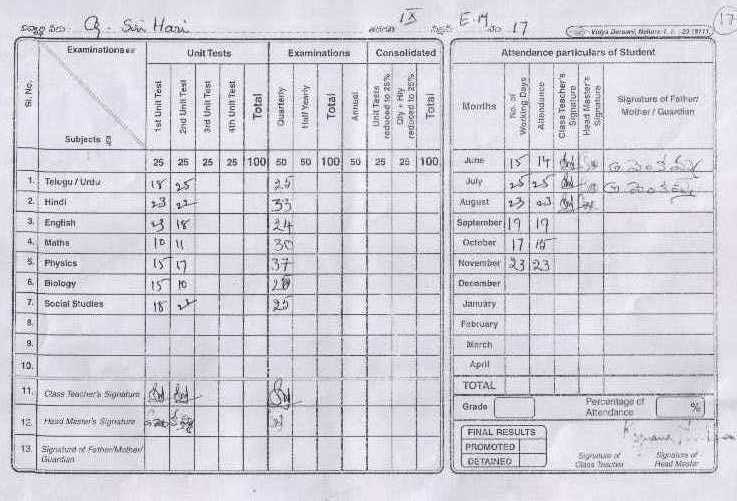 విద్యార్థి పేరు: G. Siri Hari తరగతి IX E.M నెం 17 17
Vidya Darsani, Nellore
Examinations Unit Tests Examinations Consolidated
Sl. No. Subjects 1st Unit Test 2nd Unit Test 3rd Unit Test 4th Unit Test Total Quarterly Half Yearly Total Annual Unit Tests reduced to 25% Qly + Hly reduced to 25% Total
25 25 25 25 100 50 50 50 50 25 25 100
1. Telugu / Urdu 18 25 25
2. Hindi 23 22 33
3. English 23 18 24
4. Maths 10 11 30
5. Physics 15 17 37
6. Biology 15 10
7. Social Studies 18 25
8.
9.
10.
11. Class Teacher's Signature
12. Head Master's Signature
13. Signature of Father/Mother/
Guardian
Attendance particulars of Student
Months No. of Working Days Attendance Class Teacher's Signature Head Master's Signature Signature of Father/
Mother / Guardian
June 15 14
July 25 25
August 23 23
September 19 19
October 17 15
November 23 23
December
January
February
March
April
TOTAL
Grade Percentage of
Attendance %
FINAL RESULTS
PROMOTED
DETAINED
Signature of
Class Teacher
Signature of
Head Master